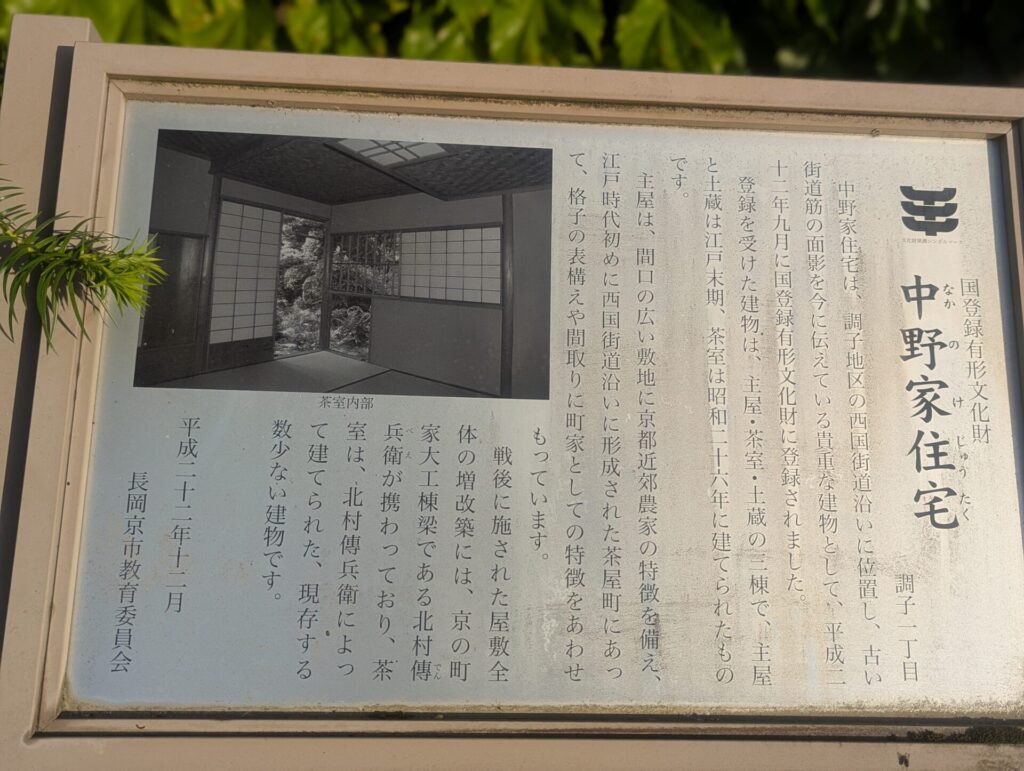 国登録有形文化財
中野家住宅
なか の け じゅう たく
調子二丁目
文化財愛護シンボルマーク
中野家住宅は、調子地区の西国街道沿いに位置し、古い
街道筋の面影を今に伝えている貴重な建物として、平成二
十二年九月に国登録有形文化財に登録されました。
登録を受けた建物は、主屋・茶室・土蔵の三棟で、主屋
と土蔵は江戸末期、茶室は昭和二十六年に建てられたもの
です。
主屋は、間口の広い敷地に京都近郊農家の特徴を備え、
江戸時代初めに西国街道沿いに形成された茶屋町にあっ
て、格子の表構えや間取りに町家としての特徴をあわせ
もっています。
戦後に施された屋敷全
体の増改築には、京の町
家大工棟梁である北村傳
でん
兵衛が携わっており、茶
べえ
室は、北村傳兵衛によっ
て建てられた、現存する
数少ない建物です。
茶室内部
平成二十二年十二月
長岡京市教育委員会